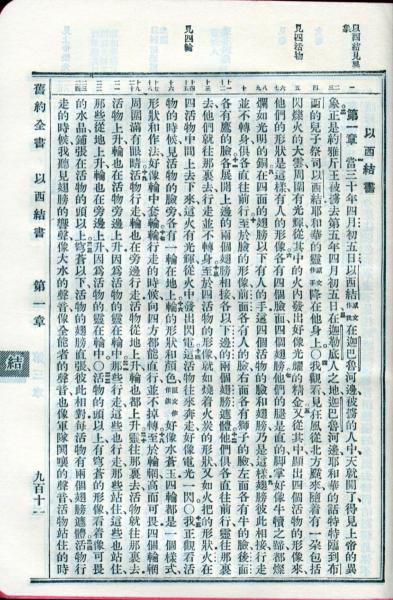 以西結見異象
見四活物
見四輪
以西結書
第一章 當三十年四月初五日以西結在迦巴魯河邊被擄的人中天就開了得見上帝的異
象正是約雅斤王被擄去第五年四月初五日在迦勒底人之地迦巴魯河邊耶和華的話特特臨到布
西的兒子祭司以西結耶和華的靈降在他身上〇我觀看見狂風從北方颳來隨着有一朵包括
閃爍火的大雲周圍有光輝從其中的火內發出好像光耀的精金又從其中顯出四個活物的形像來
他們的形狀是這樣有人的形像各有四個臉面四個翅膀他們的腿是直的脚掌好像牛犢之蹄都燦
爛如光明的銅在四面的翅膀以下有人的手這四個活物的臉和翅膀乃是這樣翅膀彼此相接行走
並不轉身俱各直往前行至於臉的形像前面各有人的臉右面各有獅子的臉左面各有牛的臉後面
各有鷹的臉各展開上邊的兩個翅膀相接各以下邊的兩個翅膀遮體他們俱各直往前行靈往那裏
去他們就往那裏去行走並不轉身至於四活物的形像就如燒着火炭的形狀又如火把的形狀火在
四活物中間上去下來這火有光輝從火中發出閃電這活物往來奔走好像電光一閃〇我正觀看活
物的時候見活物的臉旁各有一輪在地上輪的形狀和顏色好像水蒼玉四輪都是一個樣式
形狀和作法好像輪中套輪輪行走的時候向四方都能直行並不掉轉至於輪輞高而可畏四個輪輞
周圍滿有眼睛活物行走輪也在旁邊行走活物從地上升輪也都上升靈往那裏去活物就往那裏去
活物上升輪也在旁邊上升因爲活物的靈在輪中那些行走這些也行走那些站住這些也站住
那些從地上升輪也在旁邊上升因爲活物的靈在輪中〇活物的頭以上有穹蒼的形像看着像可畏
的水晶鋪張在活物的頭以上穹蒼以下活物的翅膀直張彼此相對每活物有兩個翅膀遮體活物行
走的時候我聽見翅膀的響聲像大水的聲音像全能者的聲音也像軍隊鬨嚷的聲音活物站住的時
舊約全書 以西結書 第一章
結
九百十一